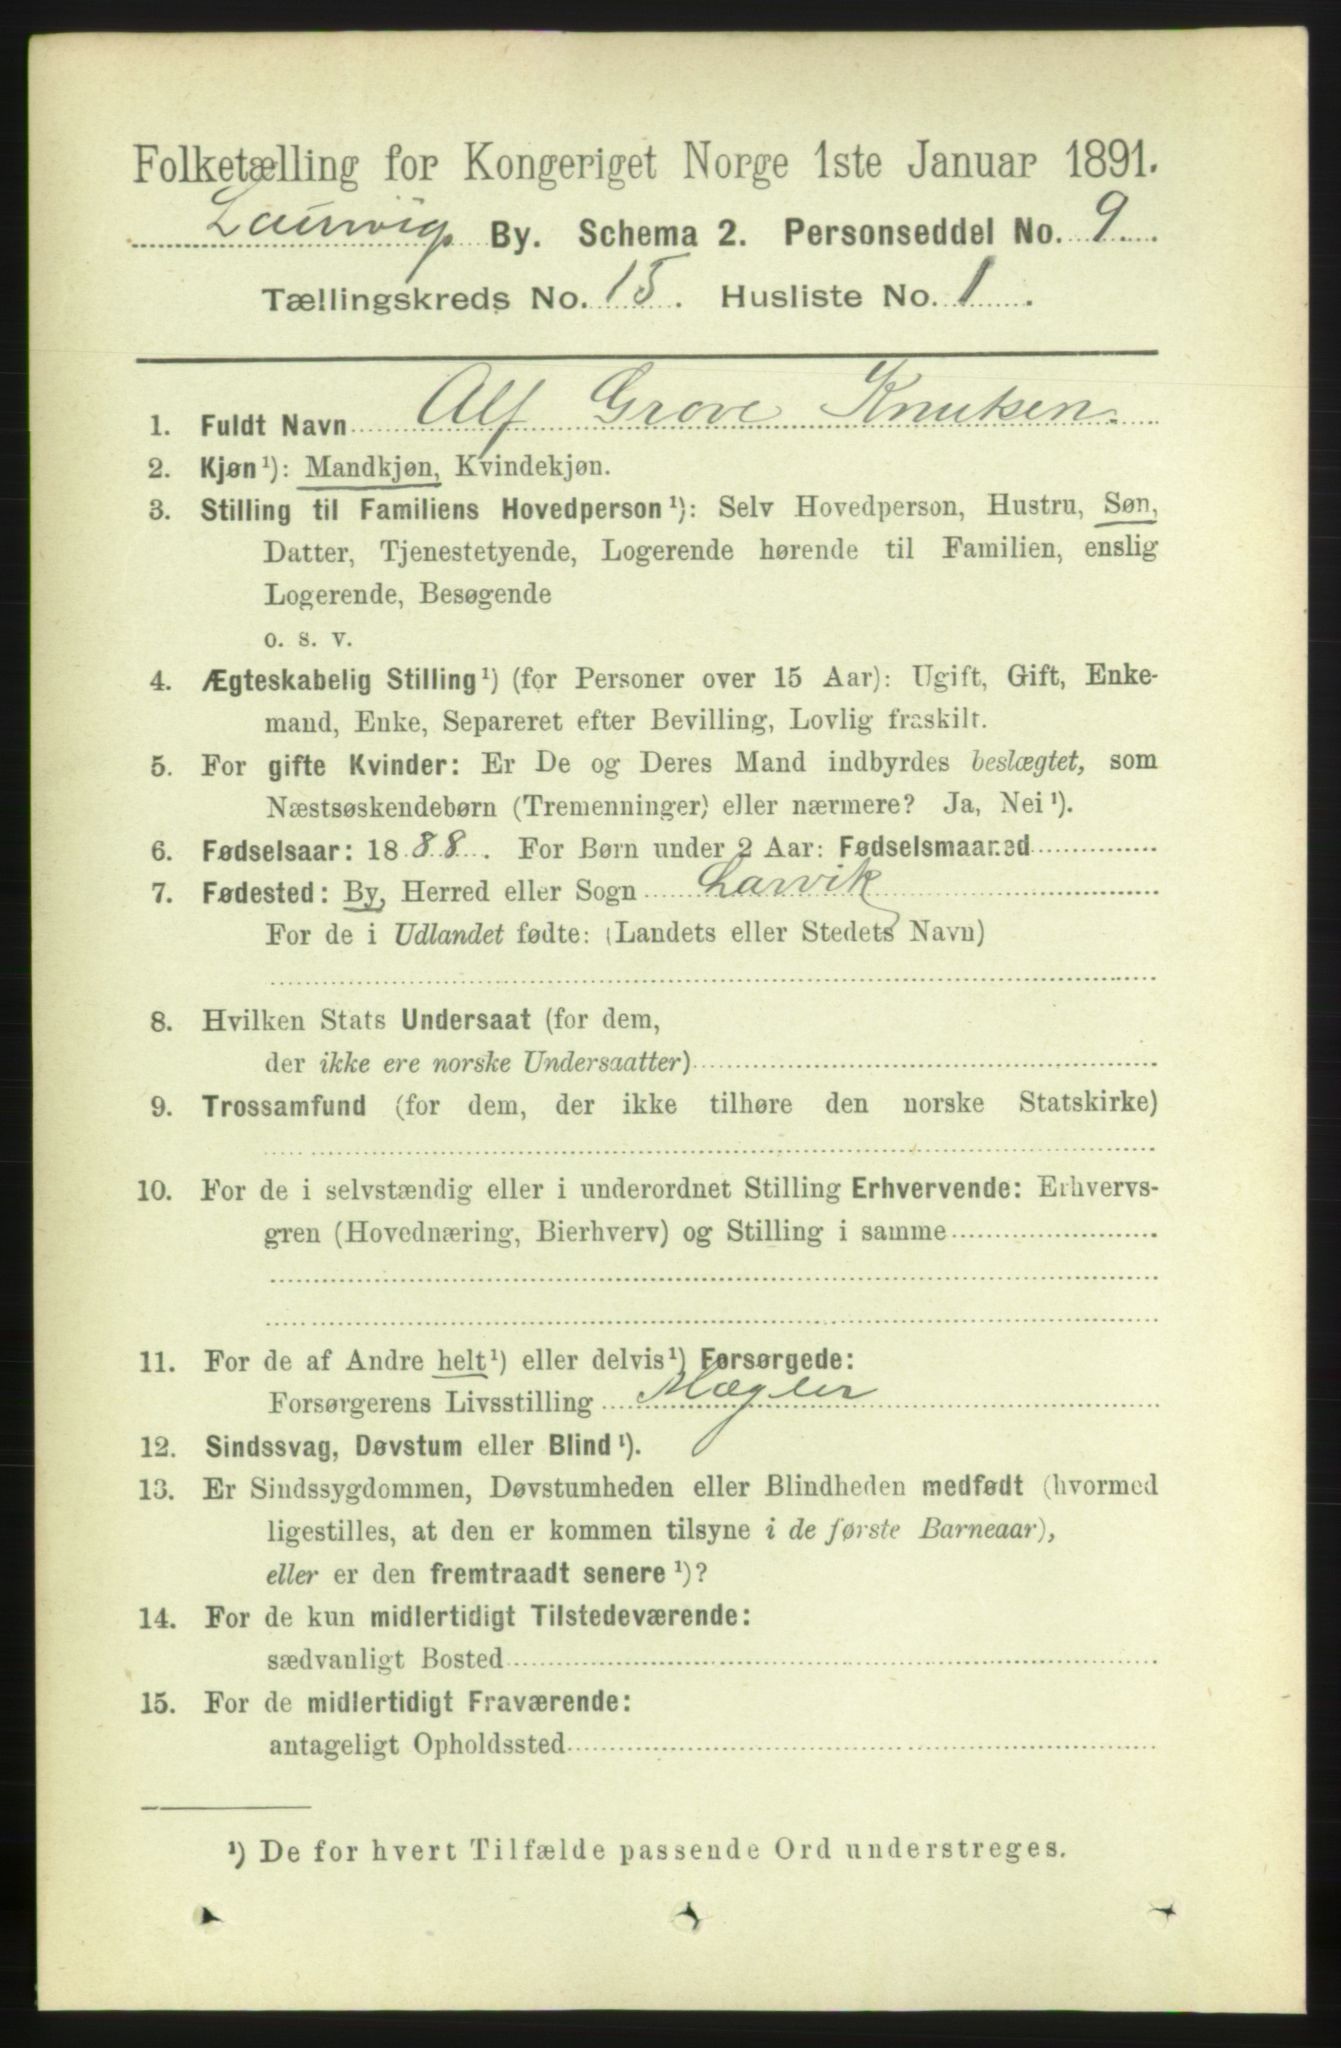 Folketælling for Kongeriget Norge 1ste Januar 1891.
Laurvig By. Schema 2. Personseddel No. 9.
Tællingskreds No. 15. Husliste No. 1.
1. Fuldt Navn Alf Grove Knutsen.
2. Kjøn¹): Mandkjøn, Kvindekjøn.
3. Stilling til Familiens Hovedperson¹): Selv Hovedperson, Hustru, Søn,
Datter, Tjenestetyende, Logerende hørende til Familien, enslig
Logerende, Besøgende
o. s. v.
4. Ægteskabelig Stilling¹) (for Personer over 15 Aar): Ugift, Gift, Enke-
mand, Enke, Separeret efter Bevilling, Lovlig fraskilt.
5. For gifte Kvinder: Er De og Deres Mand indbyrdes beslægtet, som
Næstsøskendebørn (Tremenninger) eller nærmere? Ja, Nei¹).
6. Fødselsaar: 1888. For Børn under 2 Aar: Fødselsmaaned
7. Fødested: By, Herred eller Sogn Larvik
For de i Udlandet fødte: (Landets eller Stedets Navn)
8. Hvilken Stats Undersaat (for dem,
der ikke ere norske Undersaatter)
9. Trossamfund (for dem, der ikke tilhøre den norske Statskirke)
10. For de i selvstændig eller i underordnet Stilling Erhvervende: Erhvervs-
gren (Hovednæring, Bierhverv) og Stilling i samme
11. For de af Andre helt¹) eller delvis¹) Forsørgede:
Forsørgerens Livsstilling Mægler
12. Sindssvag, Døvstum eller Blind¹).
13. Er Sindssygdommen, Døvstumheden eller Blindheden medfødt (hvormed
ligestilles, at den er kommen tilsyne i de første Barneaar),
eller er den fremtraadt senere¹)?
14. For de kun midlertidigt Tilstedeværende:
sædvanligt Bosted
15. For de midlertidigt Fraværende:
antageligt Opholdssted
¹) De for hvert Tilfælde passende Ord understreges.